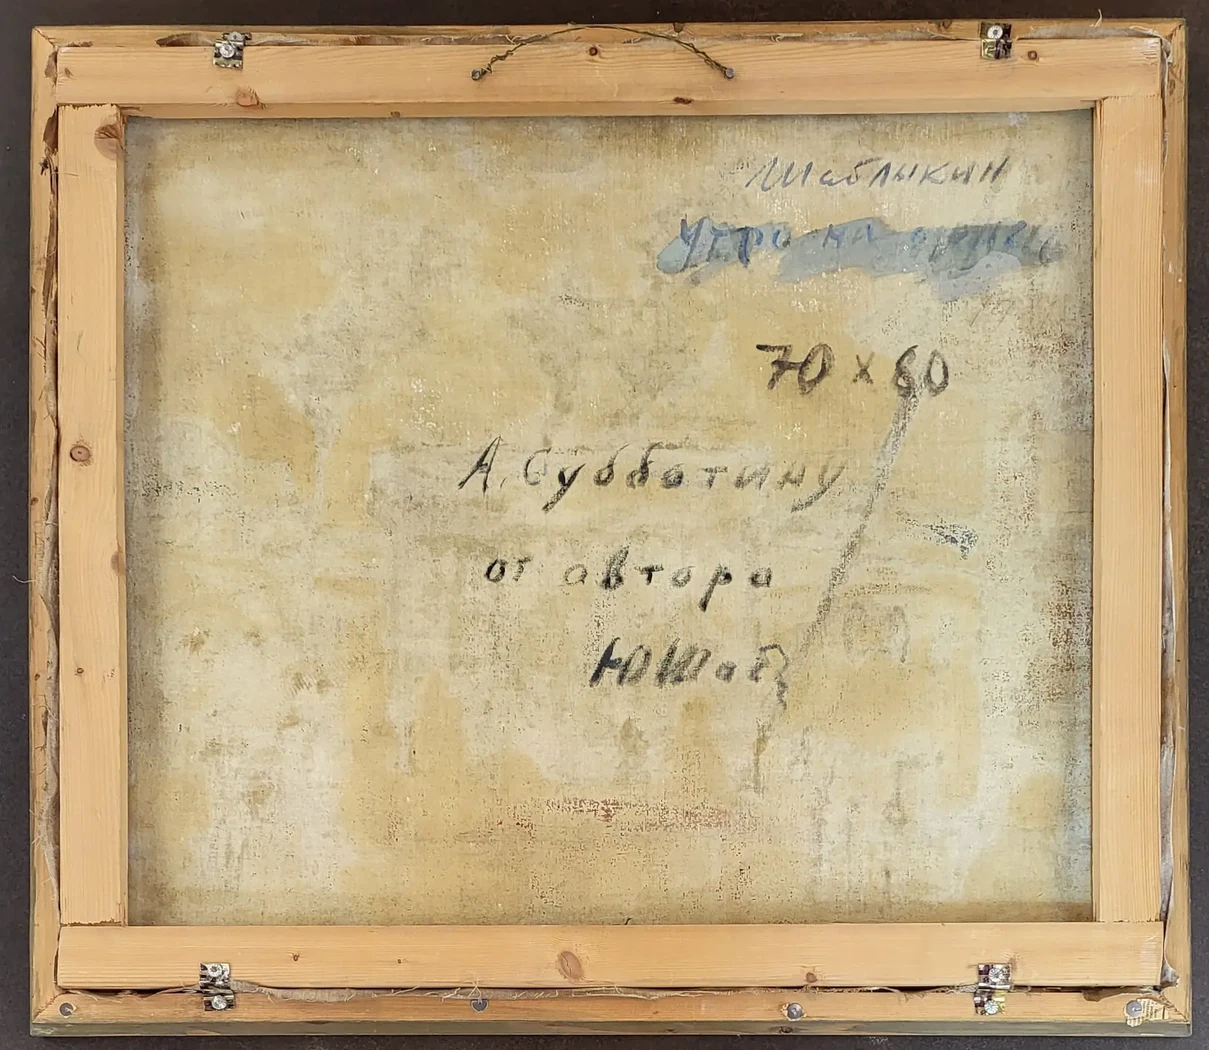 Шаблыкин
Утро на
70 х 60
А. Субботину
от автора
ЮШаб